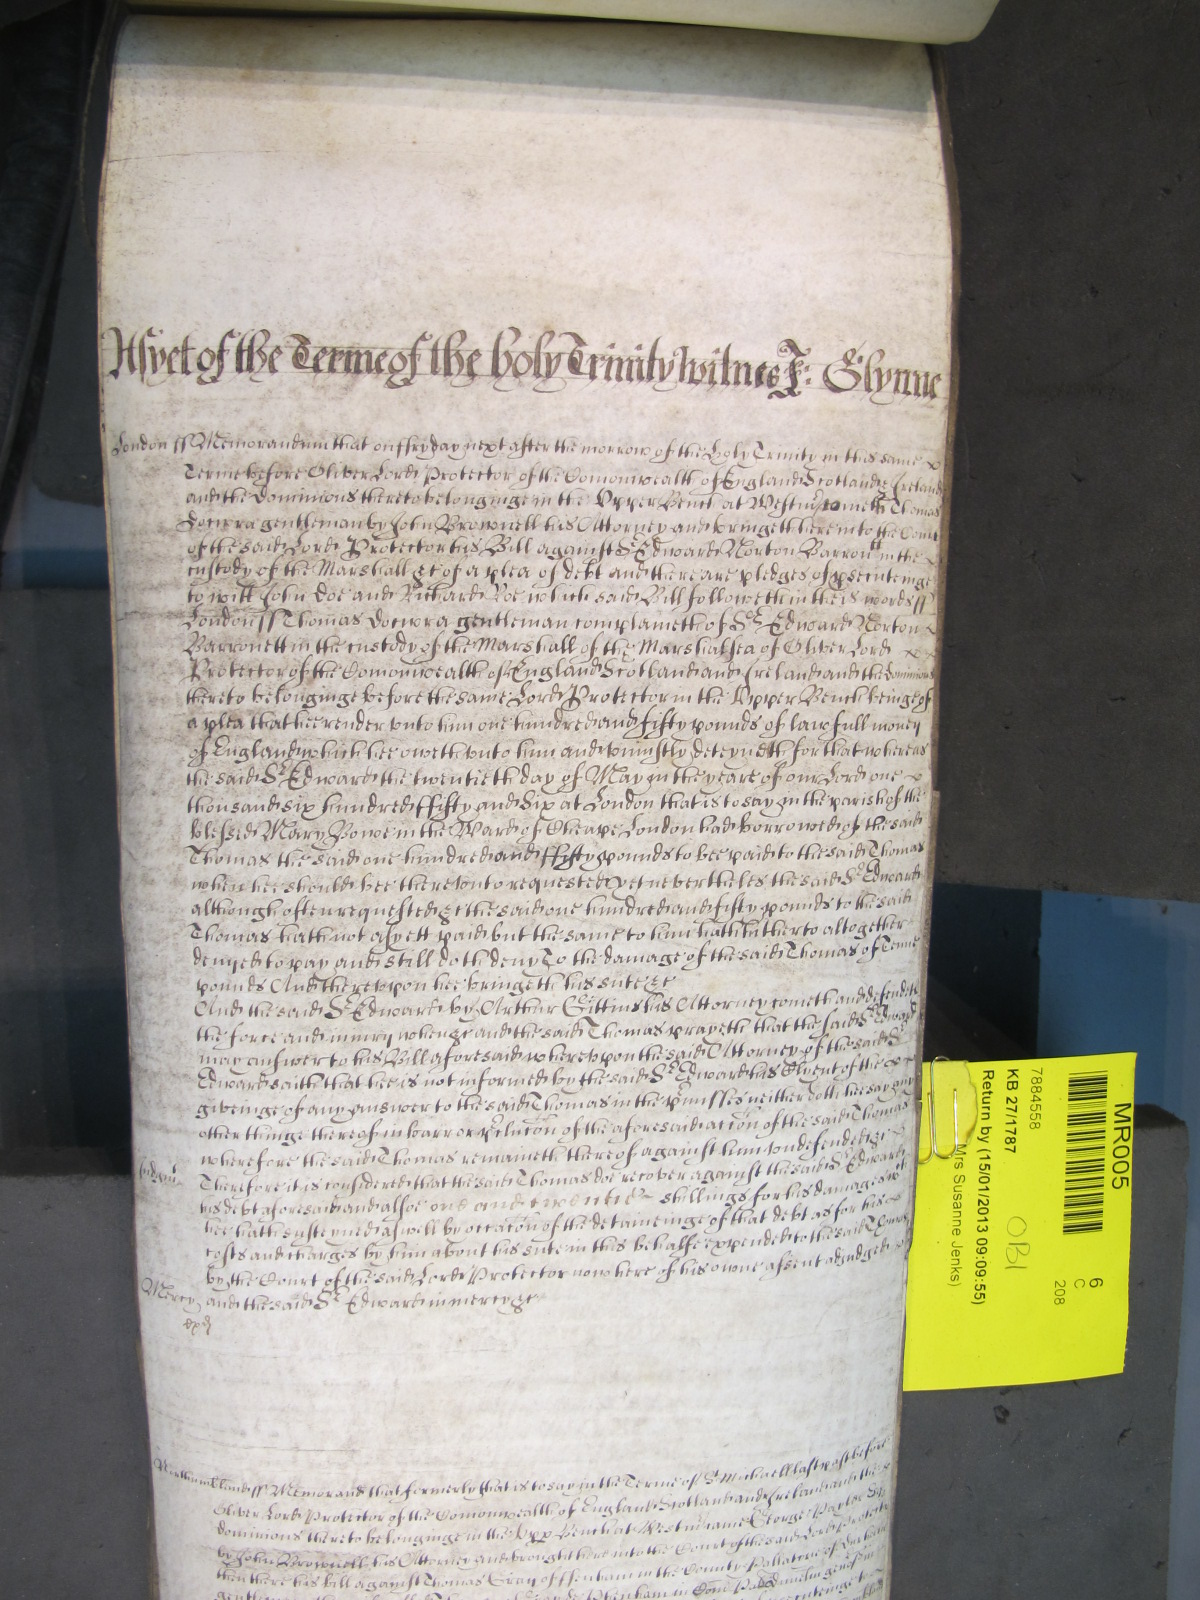 As yet of the Terme of the holy Trinity Witnes J: Glynne
London ss Memorandum that on ffryday next after the morrow of the Holy Trinity in this same
Terme before Oliver Lord Protector of the Comonwealth of England Scotland & Ireland
and the dominions thereto belonginge in the Upper Bench at Westm cometh Thomas
Docwra gentleman by John Brownell his Attorney and bringeth here into the Court
of the said Lord Protector his Bill against Sr Edward Norton Barronett in the
custody of the Marshall &c of a plea of debt and there are pledges of psecutinge
to witt John Doe and Richard Roe which said Bill followeth in theis words ss
London ss Thomas Docwra gentleman complaineth of Sr Edward Norton
Barronett in the custody of the Marshall of the Marshalsea of Oliver Lord
Protector of the Comonwealth of England Scotland and Ireland and the dominions
thereto belonginge before the same Lord Protector in the Upper Bench beinge of
a plea that hee render unto him one hundred and fifty pounds of lawfull money
of England which hee oweth unto him and uniustly deteyneth for that whereas
the said Sr Edward the twentieth day of May in the yeare of our Lord one
thousand six hundred ffifty and Six at London that is to say in the parish of the
blessed Mary Bowe in the Ward of Cheape London had borrowed of the said
Thomas the said one hundred and ffifty pounds to bee paid to the said Thomas
when hee should bee thereunto requested yet neverthelesse the said Sr Edward
although often requested &c the said one hundred and fifty pounds to the said
Thomas hath not as yett paid but the same to him hath hitherto altogether
denyed to pay and still doth deny To the damage of the said Thomas of Tenne
pounds And thereupon hee bringeth his sute &c
And the said Sr Edward by Arthur Gittins his Attorney cometh and defendeth
the force and iniury when &c and the said Thomas prayeth that the said Sr Edward
may answer to his Bill aforesaid whereupon the said Attorney of the said Sr
Edward saith that hee is not informed by the said Sr Edward his Clyent of the
giveinge of any answer to the said Thomas in the pmisses neither doth hee say any
other thinge thereof in barr or pclucon of the aforesaid accon of the said Thomas
wherefore the said Thomas remaineth thereof against him undefended &c
Therefore it is considered that the said Thomas doe recover against the said Sr Edward
his debt aforesaid and alsoe one and twentie shillings for his damages wch
hee hath susteyned aswell by occacion of the detaineinge of that debt as for his
costs and charges by him about his sute in this behalfe expended to the said Thomas
by the Court of the said Lord Protector now here of his owne assent adiudged
Mercy and the said Sr Edward in mercy &c
Memorand that formerly that is to say in the Terme of St Michaell last past before
Oliver Lord Protector of the Comonwealth of England Scotland and Ireland and the
dominions thereto belonginge in the Upp Bench at Westm came George
by John Brownell his Attorney and brought here into the Court of the said Lord Protector
then there his bill against Thomas Gray of in the County Pallatine of
MR005
6
C
208
7884558
KB 27/1787
OBI
Return by (15/01/2013 09:09:55)
Mrs Susanne Jenks)